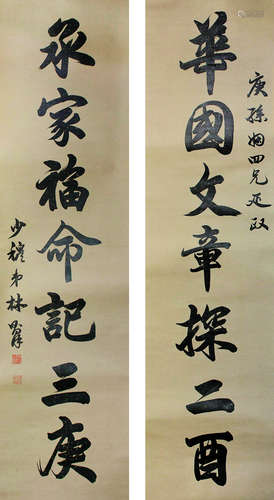 庚孫姻四兄正政
華國文章探二酉
承家福命記三庚
少穆弟林則徐